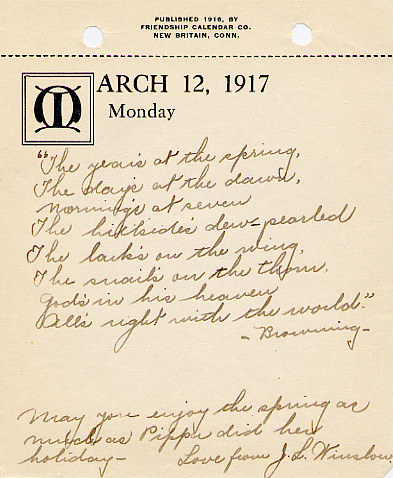 PUBLISHED 1916, BY
FRIENDSHIP CALENDAR CO.
NEW BRITAIN, CONN.
MARCH 12, 1917
Monday
"The year's at the spring,
The day's at the dawn,
Morning's at seven
The hillside's dew-pearled
The lark's on the wing,
The snail's on the thorn,
God's in his heaven
All's right with the world."
- Browning -
May you enjoy the spring as
much as Pippa did her
holiday - Love from J. L. Winslow